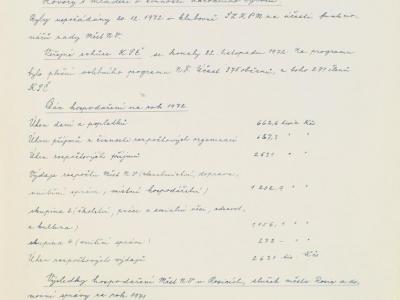 Hovory s mládeží o činnosti národního výboru
byly uspořádány 20.12.1972 v klubovně SZKPM za účasti funkcio-
nářů rady Měst N.V.
Veřejné schůze KSČ se konaly 22. listopadu 1972. Na programu
bylo plnění volebního programu N.F. Účast 375 občanů, z toho 271 členů
KSČ
Plán hospodaření na rok 1972
Úhrn daní a poplatků 662,6 tisíc Kčs
Úhrn příjmů z činnosti rozpočtových organizací 657,3 " "
Úhrn rozpočtových příjmů 2631 " "
Výdaje rozpočtu Měst N.V. (stavebnictví, doprava,
vnitřní správa, místní hospodářství) 1 202,9 " "
skupina b (školství, práce a sociální věci, zdravot.
a kultura) 1156,1 " "
skupina (vnitřní správa) 272 - " "
Úhrn rozpočtových výdajů 2631 tis Kčs
Výsledky hospodaření Měst N.V. v Rosicích, složek města Rosic a do-
movní správy za rok 1971